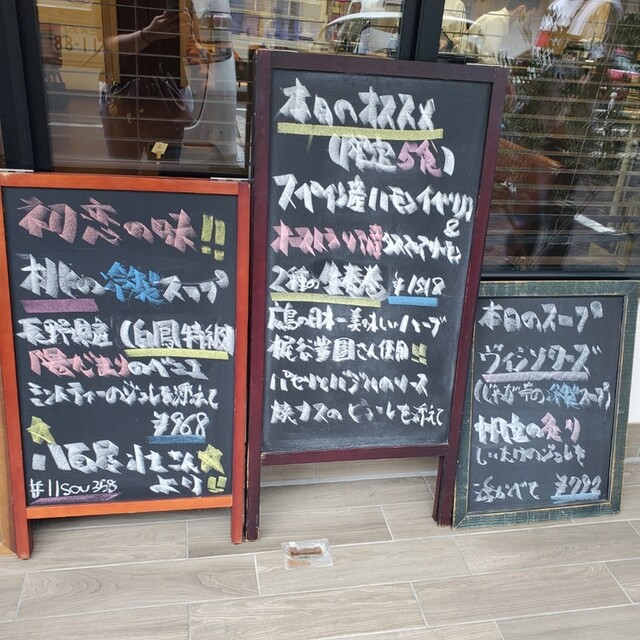 初恋の味!!
桃の冷製スープ
長野県産(白鳳特級)
ミントティーのジュレを添えて
¥968
八百屋 さん
より!!
#11sou358
本日のオススメ
(限定5食)
スペイン産ハモンイベリコ
&
2種の生春巻 ¥1818
広島の日本一美味しいハーブ
梶谷農園さん使用!!
パセリとバジルのソース
焼ナスのピューレを添えて
本日のスープ
ヴィシソワーズ
(じゃが芋の冷製スープ)
の炙り
しいたけのジュレを
浮かべて ¥792